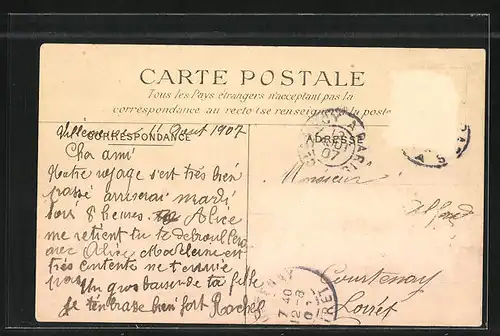 CARTE POSTALE
Tous les Pays étrangers n'acceptant pas la
correspondance au recto (se renseigner à la poste
CORRESPONDANCE
ADRESSE
Aout 1907
Cher ami
Notre voyage s'est très bien
passé arriserai mardi
soir 8 heures Alice
me retient tu te debrouillera
avec Alice Madeleine est
très contente ne t'ennuie
pas
Un gros baiser de ta fille
je t'embrasse bien fort Rachel
Monsieur
Courtenay
Loiret
PARIS
07
7 40
12-8
07
IRET